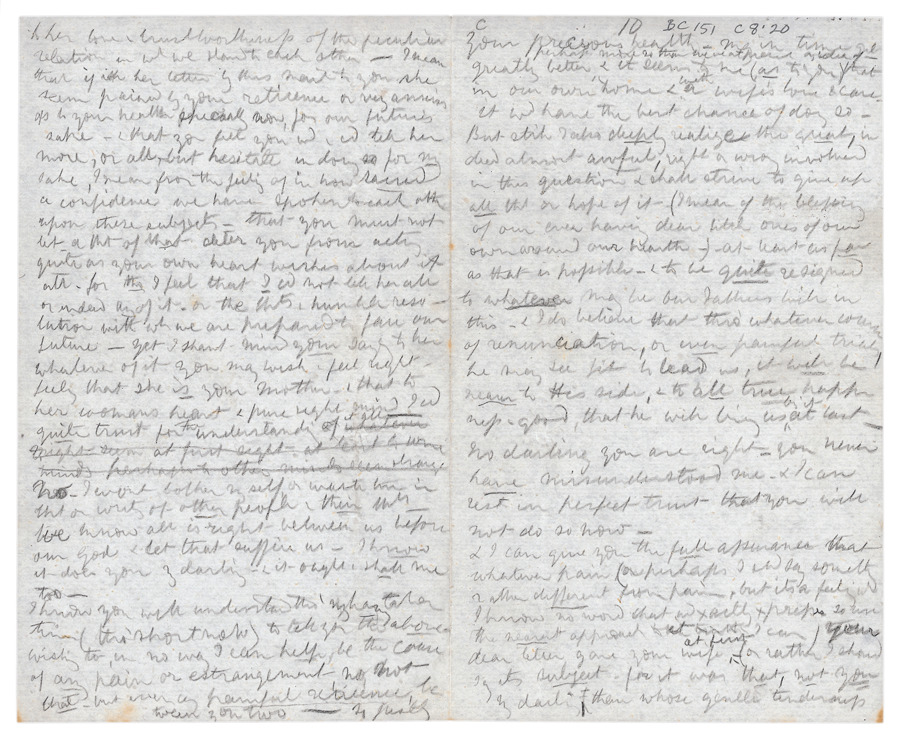 & her love & trustworthiness of the peculiar
relation in wh we stand to each other — I mean
that if in her letter by this mail to you she
seem pained by your reticence or
as to your health specially now, for our future's
sake — & that you feel you wd, cd tell her
more, or all, but hesitate in doing so for my
sake, I mean from the feeling of in how sacred
a confidence we have spoken to each other
upon these subjects — that you must not
let a tht of that deter you from acting
quite as your own heart wishes about it
all. for tho I feel that I cd not tell her all
or indeed any of it — or the thts & humble reso-
lution with wh we are prepared to face our
future — yet I shant mind your saying to her
whatever of it you may wish & feel right
feeling that she is your Mother & that to
her womans heart & pure right mind I cd
quite trust for the understanding of it all
whatever
might seem at first sight at least to some
minds perhaps to other minds strange
No — I wont bother myself or waste time in
tht or word, of other people & their thts
We know all is right between us before
our God & let that suffice us — I know
it does you my darling — & it ought & shall me
too —
I know you will understand this my having taken
time (tho' short now) to tell you the above
wishing to, in no way I can help, be the cause
of any pain or estrangement no, not
that — but even any painful reticence, be
tween you two — My
C 10 BC 151 C8:20
your precious health — may in time get
perhaps more so than at present
greatly better & it seems to me (as to you) that
in our own home & with a wife's love & care
it wd have the best chance of doing so —
But still I also deeply realize the great, in
deed almost awful, right or wrong involved
in this question & shall strive to give up
all tht or hope of it — (I mean of the blessing
of our ever having dear little ones of our
own around our hearth —) at least as far
as that is possible — & to be quite resigned
to whatever may be our Fathers will in
this — & I do believe that thro whatever course
of renunciation, or even painful trial
he may see fit to lead us, it will be
nearer to His side, & to all true happi
ness & good, that he will bring us, at last
No darling you are right — you never
have misunderstood me — & I can
rest in perfect trust that you will
not do so now —
& I can give you the full assurance that
whatever pain (or perhaps I shd say somethg
rather different from pain, but its a feeling
I know no word that wd exactly express so use
the nearest approach at first I can) your
dear letter gave your wife, or rather I should
say its subject — for it was that, not you
my darling than whose gentle tenderness